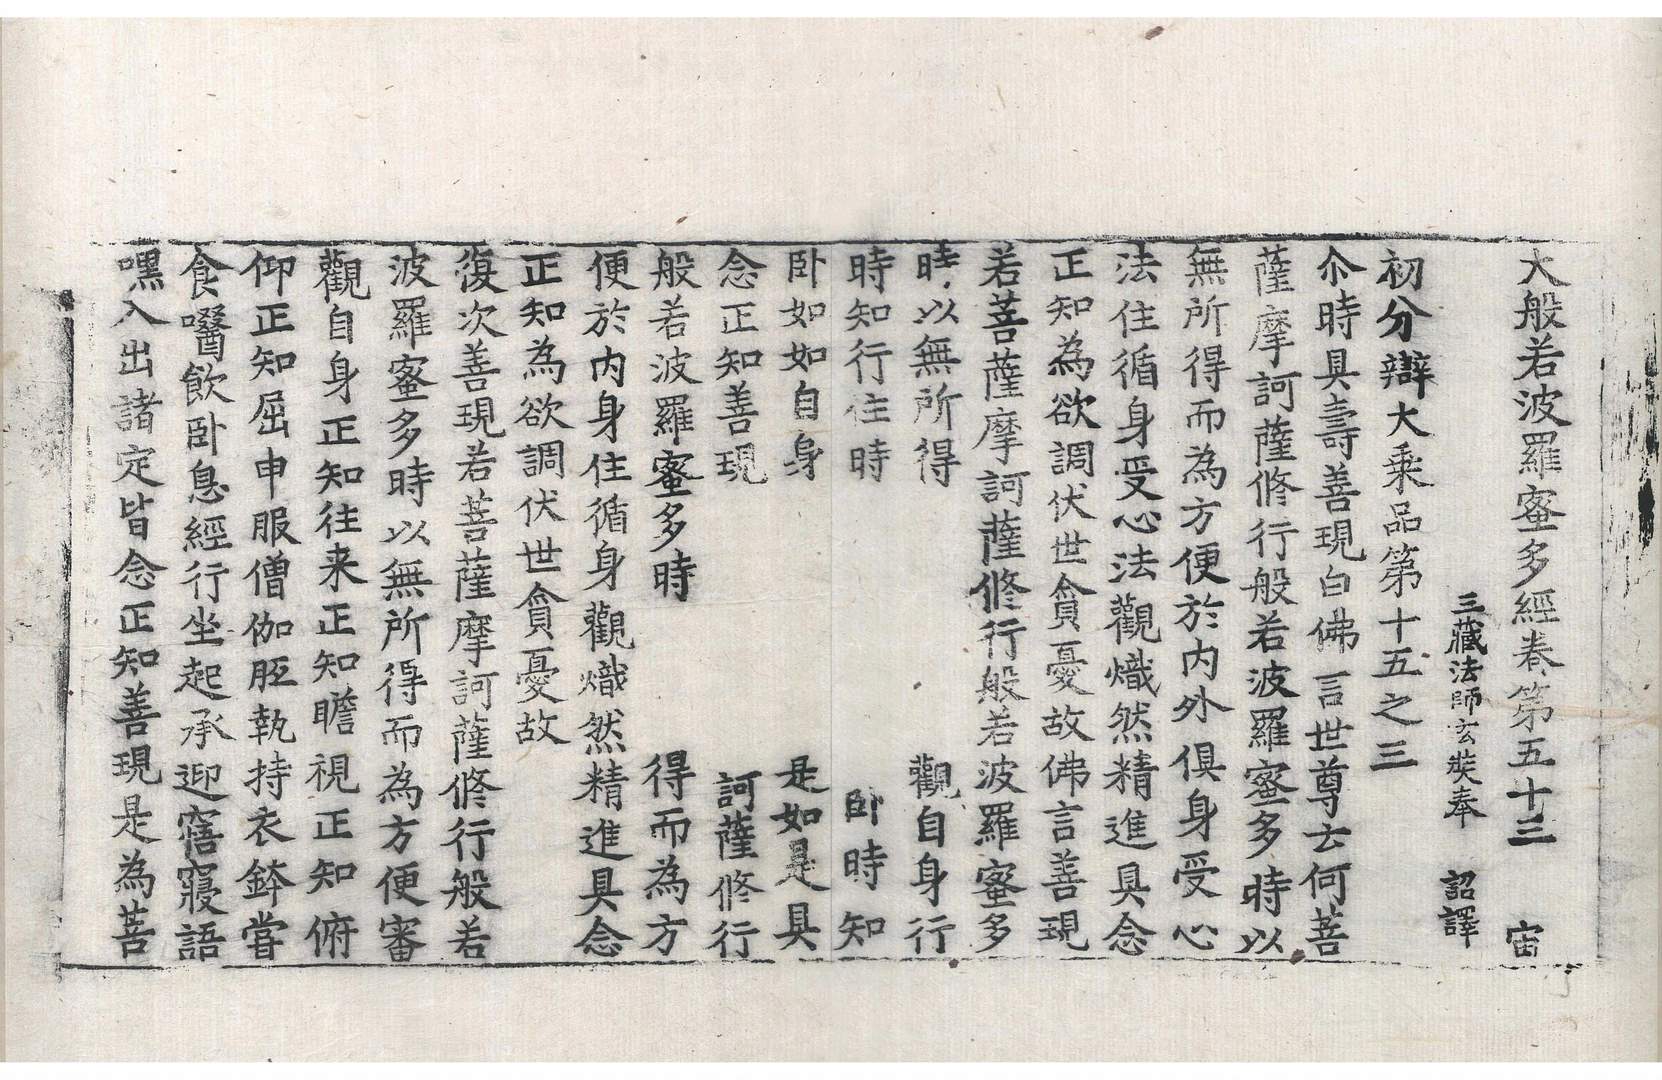 大般若波羅蜜多經卷第五十三　宙
三藏法師玄奘奉　詔譯
初分辯大乘品第十五之三
尒時具壽善現白佛言世尊云何菩
薩摩訶薩修行般若波羅蜜多時以
無所得而為方便於内外俱身受心
法住循身受心法觀熾然精進具念
正知為欲調伏世貪憂故佛言善現
若菩薩摩訶薩修行般若波羅蜜多
時以無所得　觀自身行
時知行住時　卧時知
卧如如自身　是如是具
念正知善現　訶薩修行
般若波羅蜜多時　得而為方
便於内身住循身觀熾然精進具念
正知為欲調伏世貪憂故
復次善現若菩薩摩訶薩修行般若
波羅蜜多時以無所得而為方便審
觀自身正知往来正知瞻視正知俯
仰正知屈申服僧伽胝執持衣鉢嘗
食啜飲卧息經行坐起承迎寤寢語
嘿入出諸定皆念正知善現是為菩